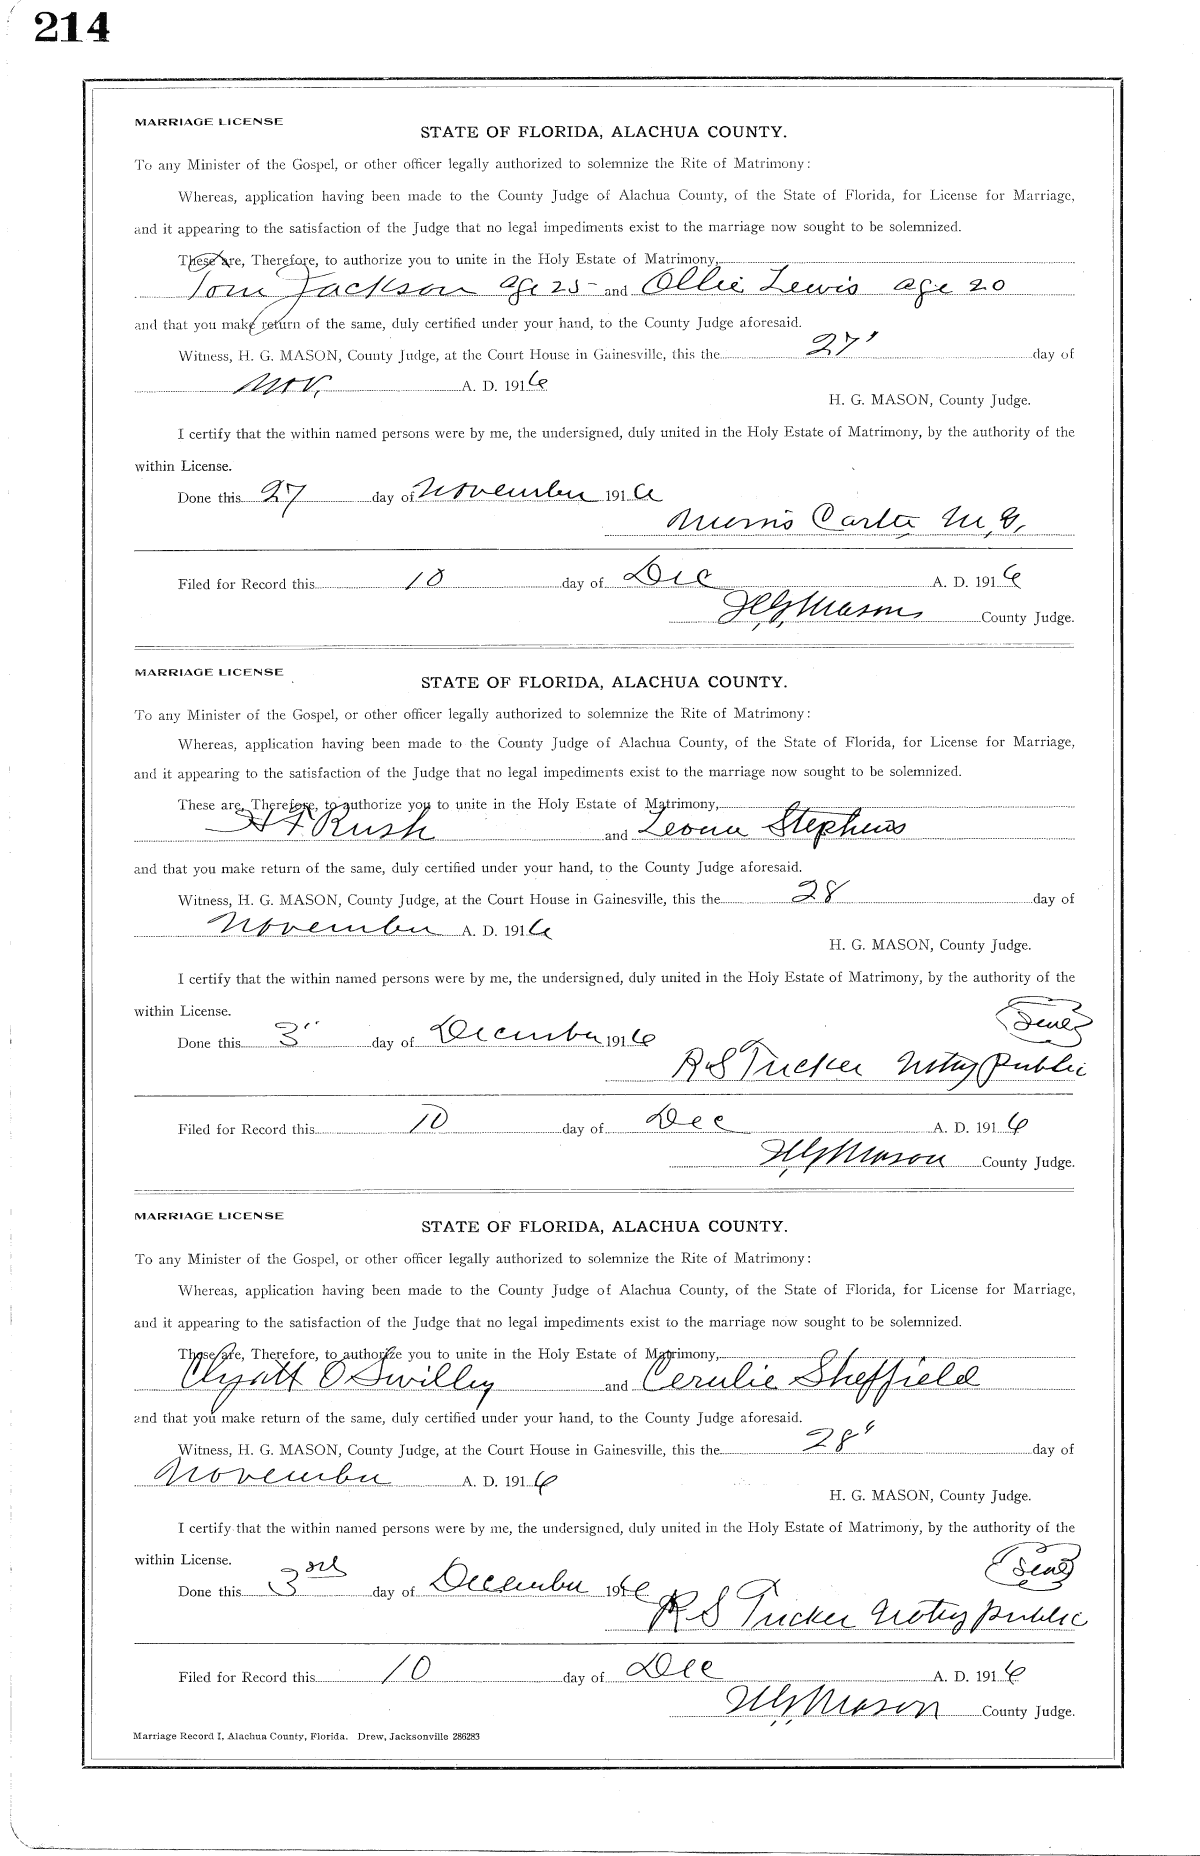 214
MARRIAGE LICENSE
STATE OF FLORIDA, ALACHUA COUNTY.
To any Minister of the Gospel, or other officer legally authorized to solemnize the Rite of Matrimony:
Whereas, application having been made to the County Judge of Alachua County, of the State of Florida, for License for Marriage,
and it appearing to the satisfaction of the Judge that no legal impediments exist to the marriage now sought to be solemnized.
These are, Therefore, to authorize you to unite in the Holy Estate of Matrimony,
Tom Jackson age 25 - and Ollie Lewis age 20
and that you make return of the same, duly certified under your hand, to the County Judge aforesaid.
Witness, H. G. MASON, County Judge, at the Court House in Gainesville, this the 27' day of
Nov. A. D. 1916
H. G. MASON, County Judge.
I certify that the within named persons were by me, the undersigned, duly united in the Holy Estate of Matrimony, by the authority of the
within License.
Done this 27 day of November 1916
Morris Carter M, G,
Filed for Record this 10 day of Dec A. D. 1916
H, G, Mason County Judge.
MARRIAGE LICENSE
STATE OF FLORIDA, ALACHUA COUNTY.
To any Minister of the Gospel, or other officer legally authorized to solemnize the Rite of Matrimony:
Whereas, application having been made to the County Judge of Alachua County, of the State of Florida, for License for Marriage,
and it appearing to the satisfaction of the Judge that no legal impediments exist to the marriage now sought to be solemnized.
These are, Therefore, to authorize you to unite in the Holy Estate of Matrimony,
H F Rush and Leona Stephens
and that you make return of the same, duly certified under your hand, to the County Judge aforesaid.
Witness, H. G. MASON, County Judge, at the Court House in Gainesville, this the 28 day of
November A. D. 1916
H. G. MASON, County Judge.
I certify that the within named persons were by me, the undersigned, duly united in the Holy Estate of Matrimony, by the authority of the
within License.
Seal
Done this 3" day of December 1916
R S Tucker Notry public
Filed for Record this 10 day of Dec A. D. 1916
H G Mason County Judge.
MARRIAGE LICENSE
STATE OF FLORIDA, ALACHUA COUNTY.
To any Minister of the Gospel, or other officer legally authorized to solemnize the Rite of Matrimony:
Whereas, application having been made to the County Judge of Alachua County, of the State of Florida, for License for Marriage,
and it appearing to the satisfaction of the Judge that no legal impediments exist to the marriage now sought to be solemnized.
These are, Therefore, to authorize you to unite in the Holy Estate of Matrimony,
Clyatt O Swilley and Cerulie Sheffield
and that you make return of the same, duly certified under your hand, to the County Judge aforesaid.
Witness, H. G. MASON, County Judge, at the Court House in Gainesville, this the 28" day of
November A. D. 1916
H. G. MASON, County Judge.
I certify that the within named persons were by me, the undersigned, duly united in the Holy Estate of Matrimony, by the authority of the
within License.
Seal
Done this 3rd day of December 1916
R S Tucker Notry public
Filed for Record this 10 day of Dec A. D. 1916
H G Mason County Judge.
Marriage Record I, Alachua County, Florida. Drew, Jacksonville 286283